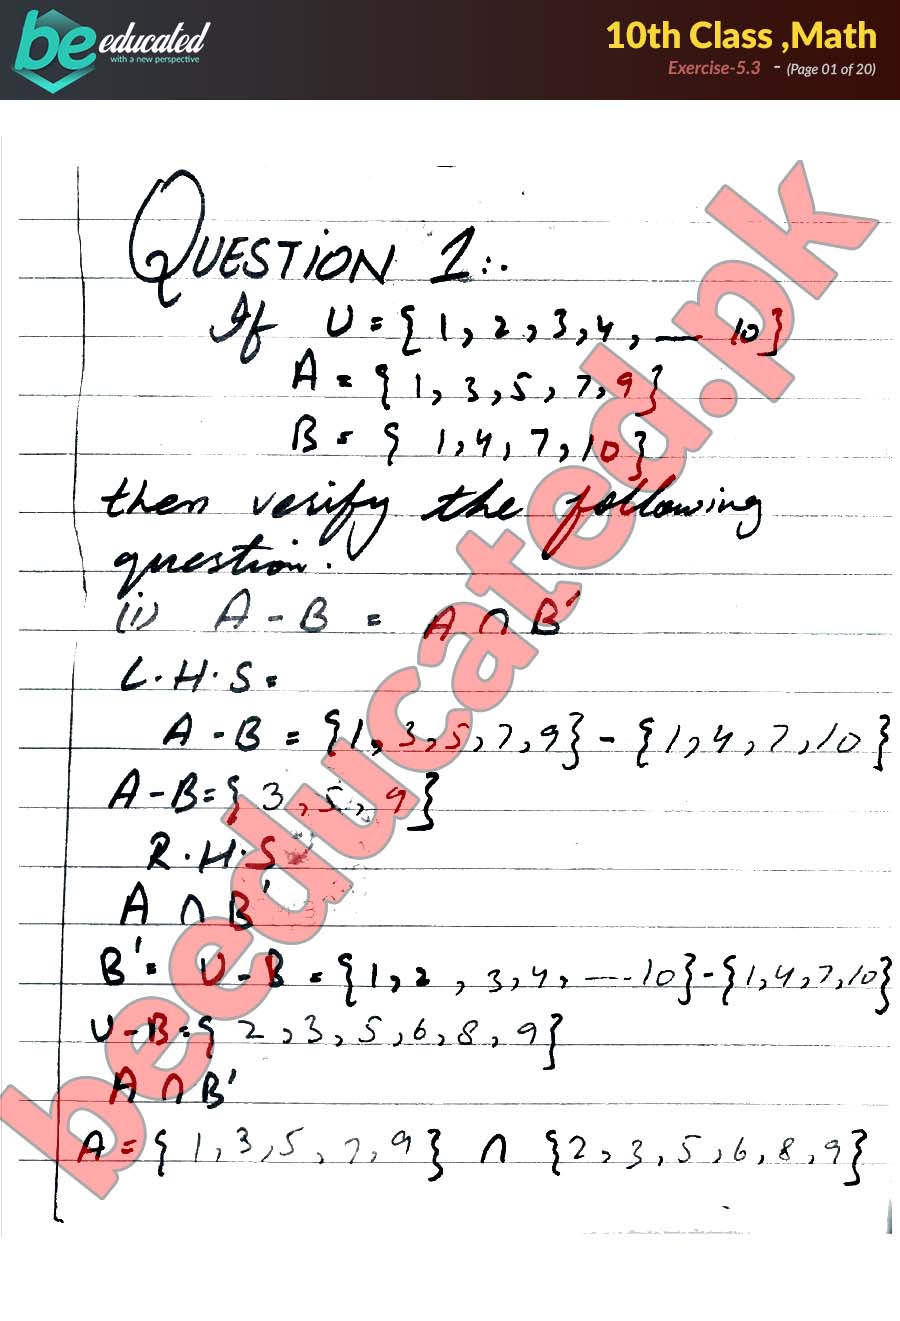 be educated
with a new perspective
10th Class ,Math
Exercise-5.3 - (Page 01 of 20)
QUESTION 1:.
If U = {1, 2, 3, 4, — 10}
A = {1, 3, 5, 7, 9}
B = { 1, 4, 7, 10}
then verify the following
question.
(i) A - B = A ∩ B'
L.H.S =
A - B = {1, 3, 5, 7, 9} - {1, 4, 7, 10}
A - B = { 3, 5, 9 }
R.H.S
A ∩ B'
B' = U - B = {1, 2, 3, 4, ---- 10} - {1, 4, 7, 10}
U - B = { 2, 3, 5, 6, 8, 9}
A ∩ B'
A = { 1, 3, 5, 7, 9} ∩ {2, 3, 5, 6, 8, 9}
beeducated.pk